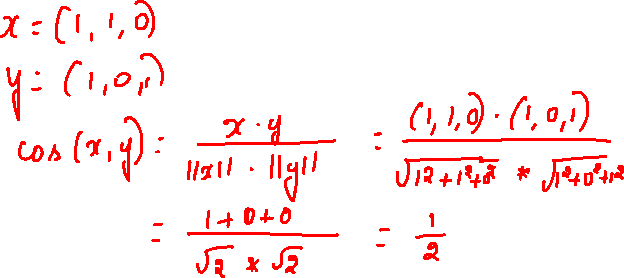 x = (1, 1, 0)
y = (1, 0, 1)
cos(x, y) = x · y / ||x|| · ||y|| = (1, 1, 0) · (1, 0, 1) / √1² + 1² + 0² * √1² + 0² + 1²
= 1 + 0 + 0 / √2 * √2 = 1 / 2